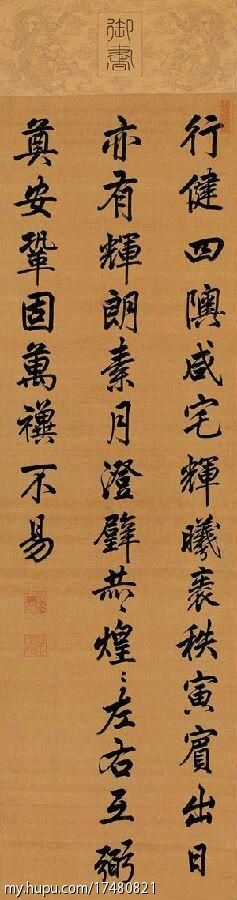 御書
行健四隩咸宅輝曦秩寅賓出日
亦有輝朗素月澄璧煌〻左右互弼
奠安鞏固萬禩不易
my.hupu.com/17480821